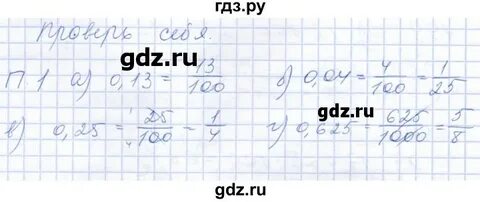 гдз.ру
Проверь себя.
gdz.ru
П.1 а) 0,13 = 13/100 б) 0,04 = 4/100 = 1/25
gdz.ru
в) 0,25 = 25/100 = 1/4 г) 0,625 = 625/1000 = 5/8
gdz.ru
gdz.ru